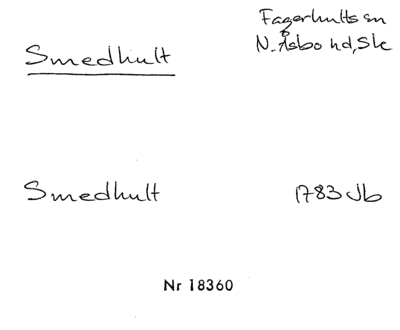 Smedhult
Fagerhults sn
N. Åsbo hd, Sk
Smedhult
1783 Jb
Nr 18360